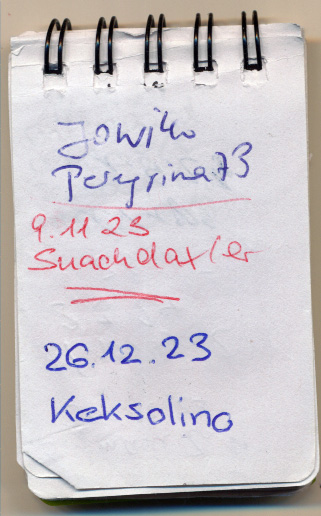 Jowiko
Peregrina73
9.11 23
Suachdaxler
26.12.23
Keksolino